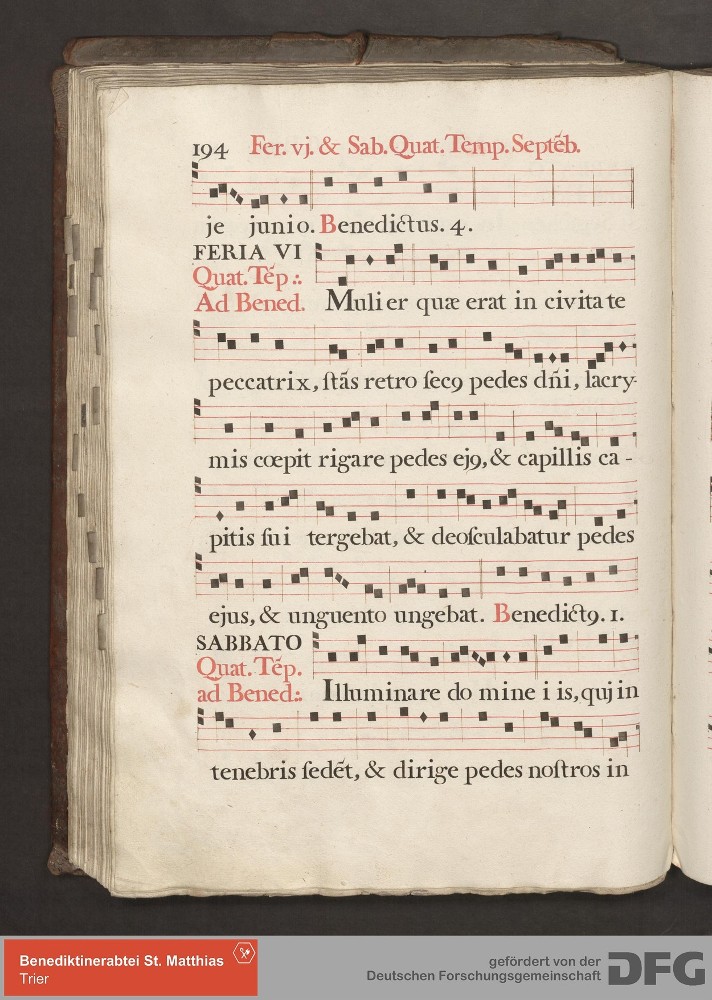 194 Fer. vj. & Sab. Quat. Temp. Septẽb.
je junio. Benedictus. 4.
FERIA VI
Quat. Tẽp :.
Ad Bened. Mulier quæ erat in civitate
peccatrix, ſtãs retro ſecꝯ pedes dñi, lacry-
mis cœpit rigare pedes ejꝯ, & capillis ca-
pitis ſui tergebat, & deoſculabatur pedes
ejus, & unguento ungebat. Benedictꝯ. 1.
SABBATO
Quat. Tẽp.
ad Bened:. Illuminare domine iis, quj in
tenebris ſedẽt, & dirige pedes noſtros in
Benediktinerabtei St. Matthias
Trier
gefördert von der
Deutschen Forschungsgemeinschaft
DFG